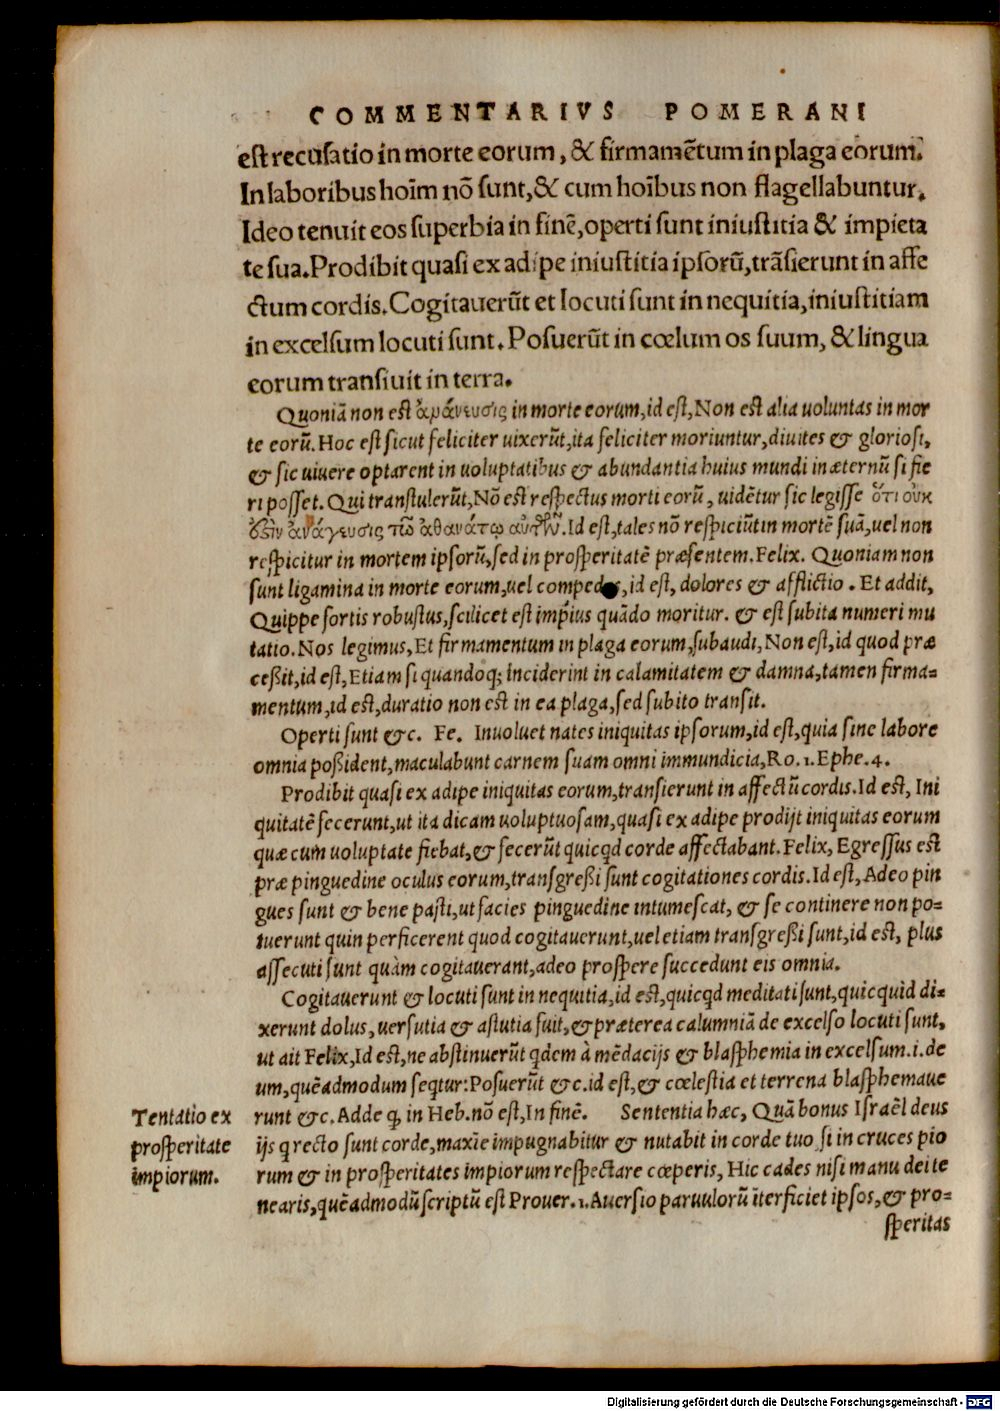 COMMENTARIVS POMERANI
est recusatio in morte eorum, & firmamētum in plaga eorum.
In laboribus hoīm nō sunt, & cum hoībus non flagellabuntur.
Ideo tenuit eos superbia in finē, operti sunt iniustitia & impieta
te sua. Prodibit quasi ex adipe iniustitia ipsorū, trāsierunt in affe
ctum cordis. Cogitauerūt et locuti sunt in nequitia, iniustitiam
in excelsum locuti sunt. Posuerūt in cœlum os suum, & lingua
eorum transiuit in terra.
Quoniā non est ἀράνευσις in morte eorum, id est, Non est alia uoluntas in mor
te eorū. Hoc est sicut feliciter uixerūt, ita feliciter moriuntur, diuites & gloriosi,
& sic uiuere optarent in uoluptatibus & abundantia huius mundi in æternū si fie
ri posset. Qui transtulerūt, Nō est respectus morti eorū, uidētur sic legisse ὅτι οὐκ
ἀνάγευσις τῶ ἀθανάτῳ αὐτῶν. Id est, tales nō respiciūt in mortē suā, uel non
respicitur in mortem ipsorū, sed in prosperitatē præsentem. Felix. Quoniam non
sunt ligamina in morte eorum, uel compedes, id est, dolores & afflictio. Et addit,
Quippe fortis robustus, scilicet est impius quādo moritur. & est subita numeri mu
tatio. Nos legimus, Et firmamentum in plaga eorum, subaudi, Non est, id quod præ
ceßit, id est, Etiam si quandoq; inciderint in calamitatem & damna, tamen firma=
mentum, id est, duratio non est in ea plaga, sed subito transit.
Operti sunt &c. Fe. Inuoluet nates iniquitas ipsorum, id est, quia sine labore
omnia poßident, maculabunt carnem suam omni immundicia, Ro. 1. Ephe. 4.
Prodibit quasi ex adipe iniquitas eorum, transierunt in affectū cordis. Id est, Ini
quitatē fecerunt, ut ita dicam uoluptuosam, quasi ex adipe prodijt iniquitas eorum
quæ cum uoluptate fiebat, & fecerūt quicqd corde affectabant. Felix, Egressus est
præ pinguedine oculus eorum, transgreßi sunt cogitationes cordis. Id est, Adeo pin
gues sunt & bene pasti, ut facies pinguedine intumescat, & se continere non po=
tuerunt quin perficerent quod cogitauerunt, uel etiam transgreßi sunt, id est, plus
assecuti sunt quàm cogitauerant, adeo prospere succedunt eis omnia.
Cogitauerunt & locuti sunt in nequitia, id est, quicqd meditati sunt, quicquid di=
xerunt dolus, uersutia & astutia fuit, & præterea calumniā de excelso locuti sunt,
ut ait Felix, Id est, ne abstinuerūt qdem à mēdacijs & blasphemia in excelsum. i. de
um, quēadmodum seqtur: Posuerūt &c. id est, & cœlestia et terrena blasphemaue
runt &c. Adde ꝙ in Heb. nō est, In finē. Sententia hæc, Quā bonus Israēl deus
ijs q recto sunt corde, maxīe impugnabitur & nutabit in corde tuo si in cruces pio
rum & in prosperitates impiorum respectare cœperis, Hic cades nisi manu dei te
nearis, quēadmodū scriptū est Prouer. 1. Auersio paruulorū īterficiet ipsos, & pro=
speritas
Tentatio ex
prosperitate
impiorum.
Digitalisierung gefördert durch die Deutsche Forschungsgemeinschaft - DFG